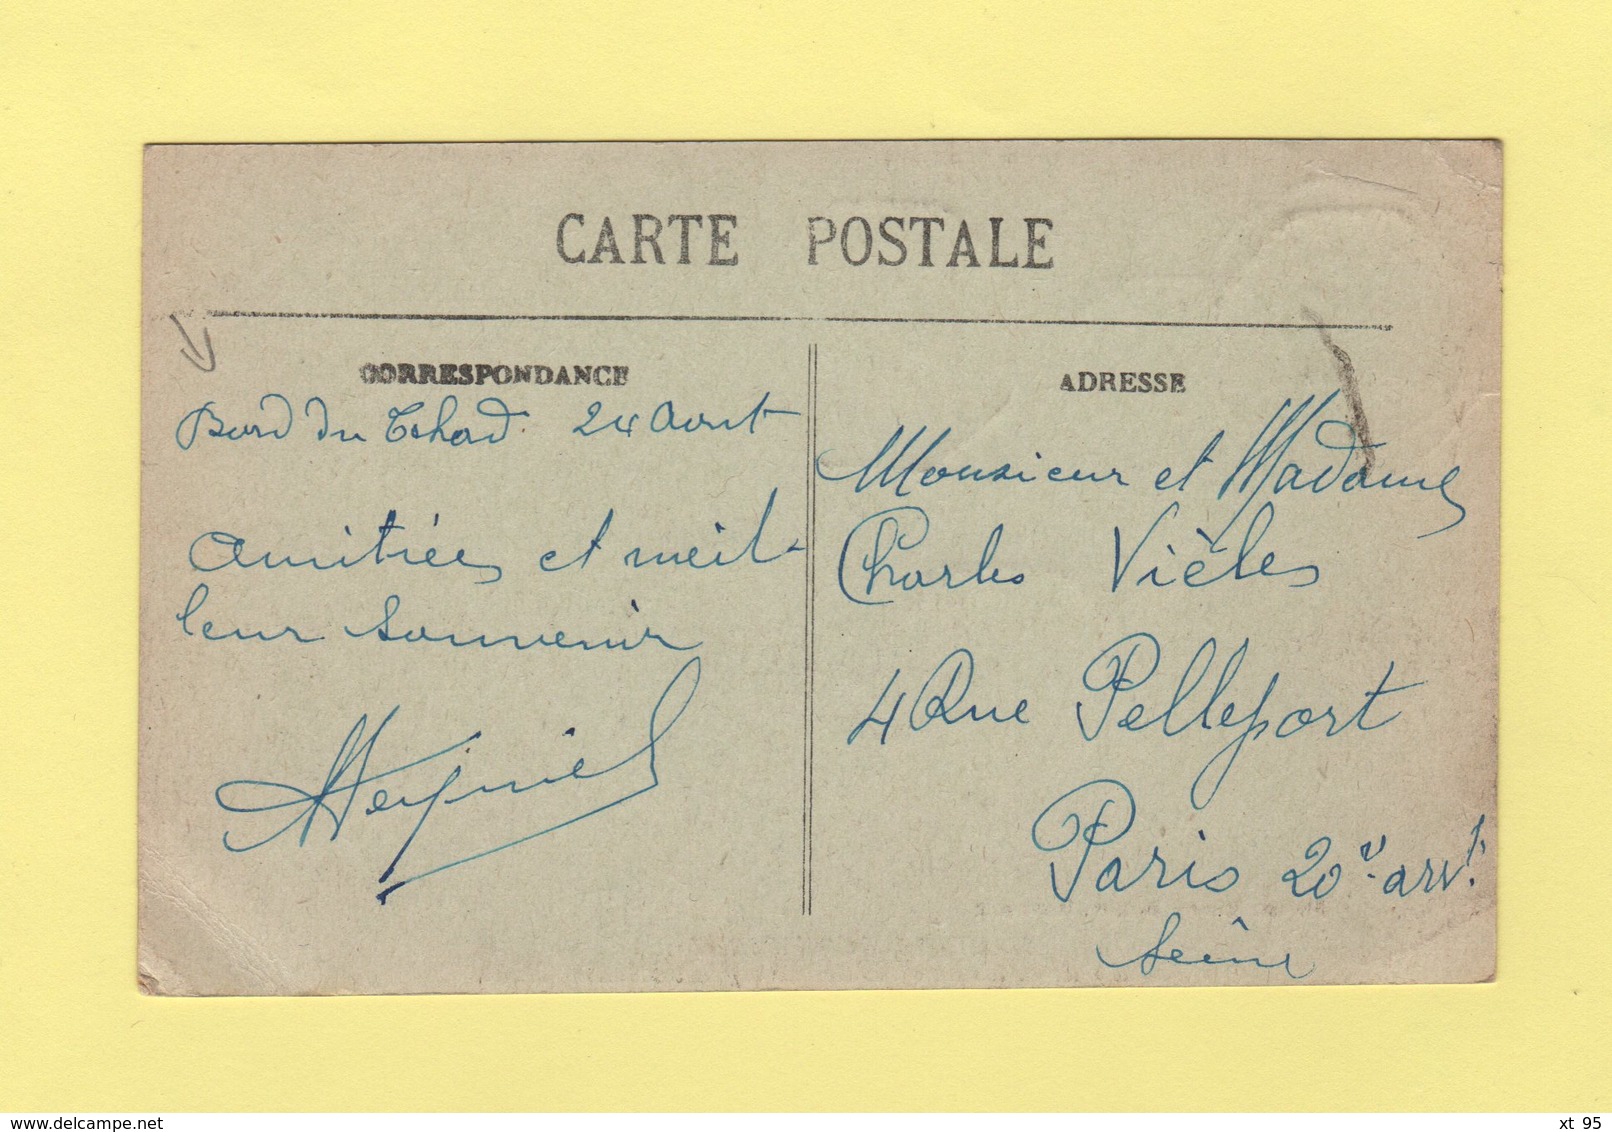 CARTE POSTALE
CORRESPONDANCE
Bord du Tchad. 24 Aout
Amitiées et meil-
leur souvenir
ADRESSE
Monsieur et Madame
Charles Vièles
4 Rue Pelleport
Paris 20e arrt.
Seine
delcampe.net
xt 95